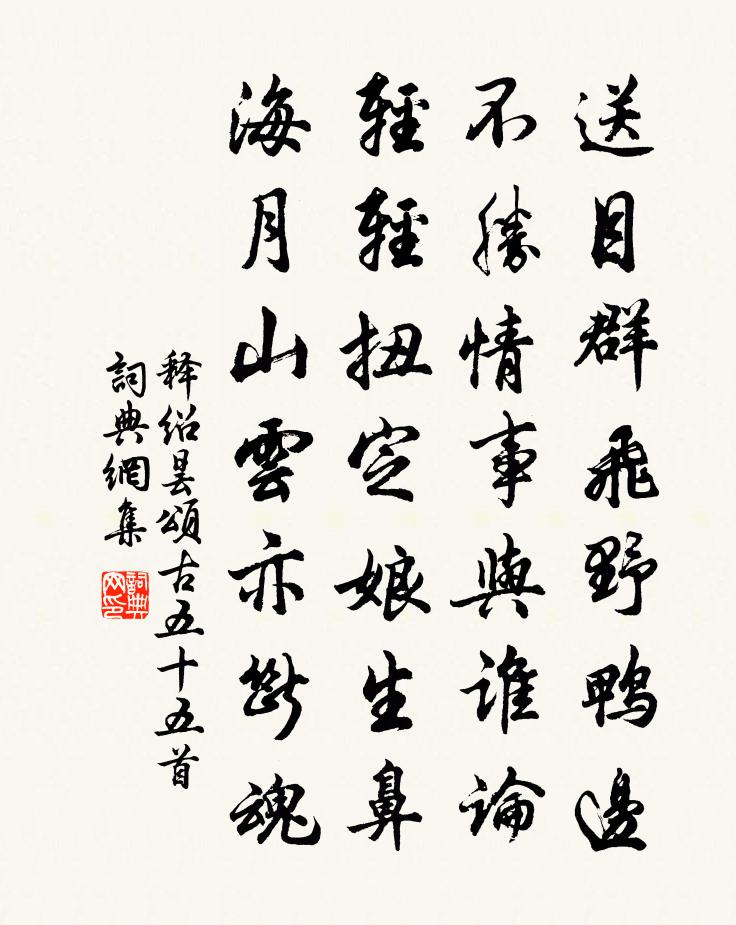 送目群飛野鴨邊
不勝情事與誰論
輕輕扭定娘生鼻
海月山雲亦斷魂
释绍昙頌古五十五首
詞典網集
詞典网印